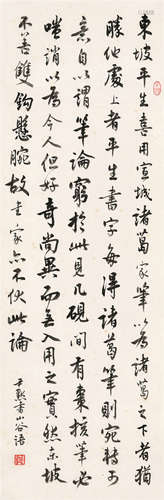 東坡平生喜用宣城諸葛家筆以為諸葛之下者猶
勝他處上者平生書字每得諸葛筆則宛轉可
意自以謂筆論窮於此見几硯間有棗核筆必
嗤誚以為今人但好奇尚異而無入用之實然東坡
不善雙鉤懸腕故書家亦不伏此論
尹默書山谷語